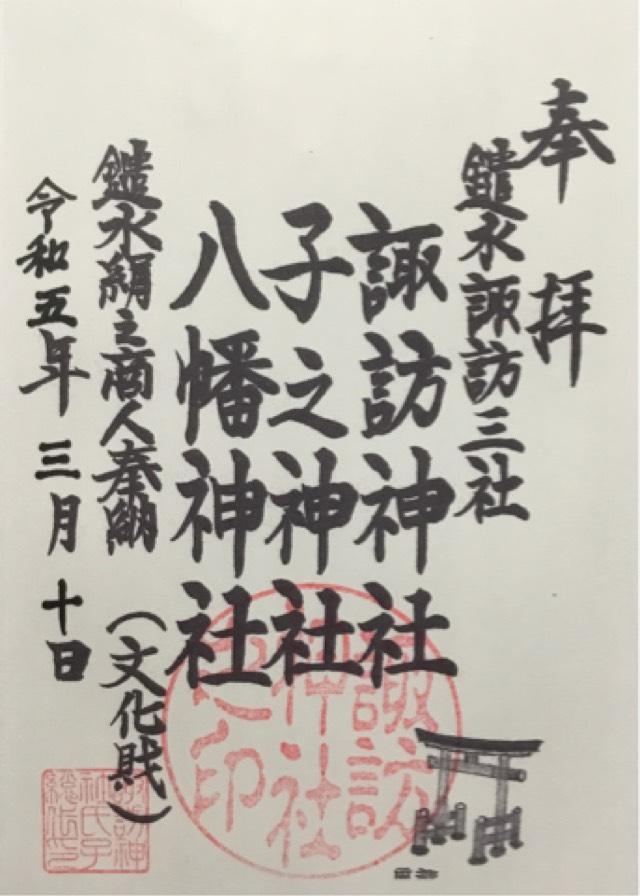 奉拝
鑓水諏訪三社
諏訪神社
子之神社
八幡神社
鑓水絹之商人奉納(文化財)
令和五年三月十日
諏訪
神社
之印
諏訪神
社氏子
総代印